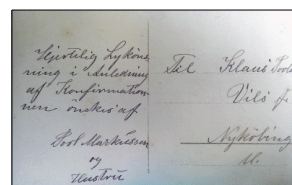 Hjertelig Lykønsk-
ning i Anledning
af Konfirmation
nen ønskes af
Poul Markussen
og
Hustru
Til Klaus
Vils pr.
Nyköbing
M.